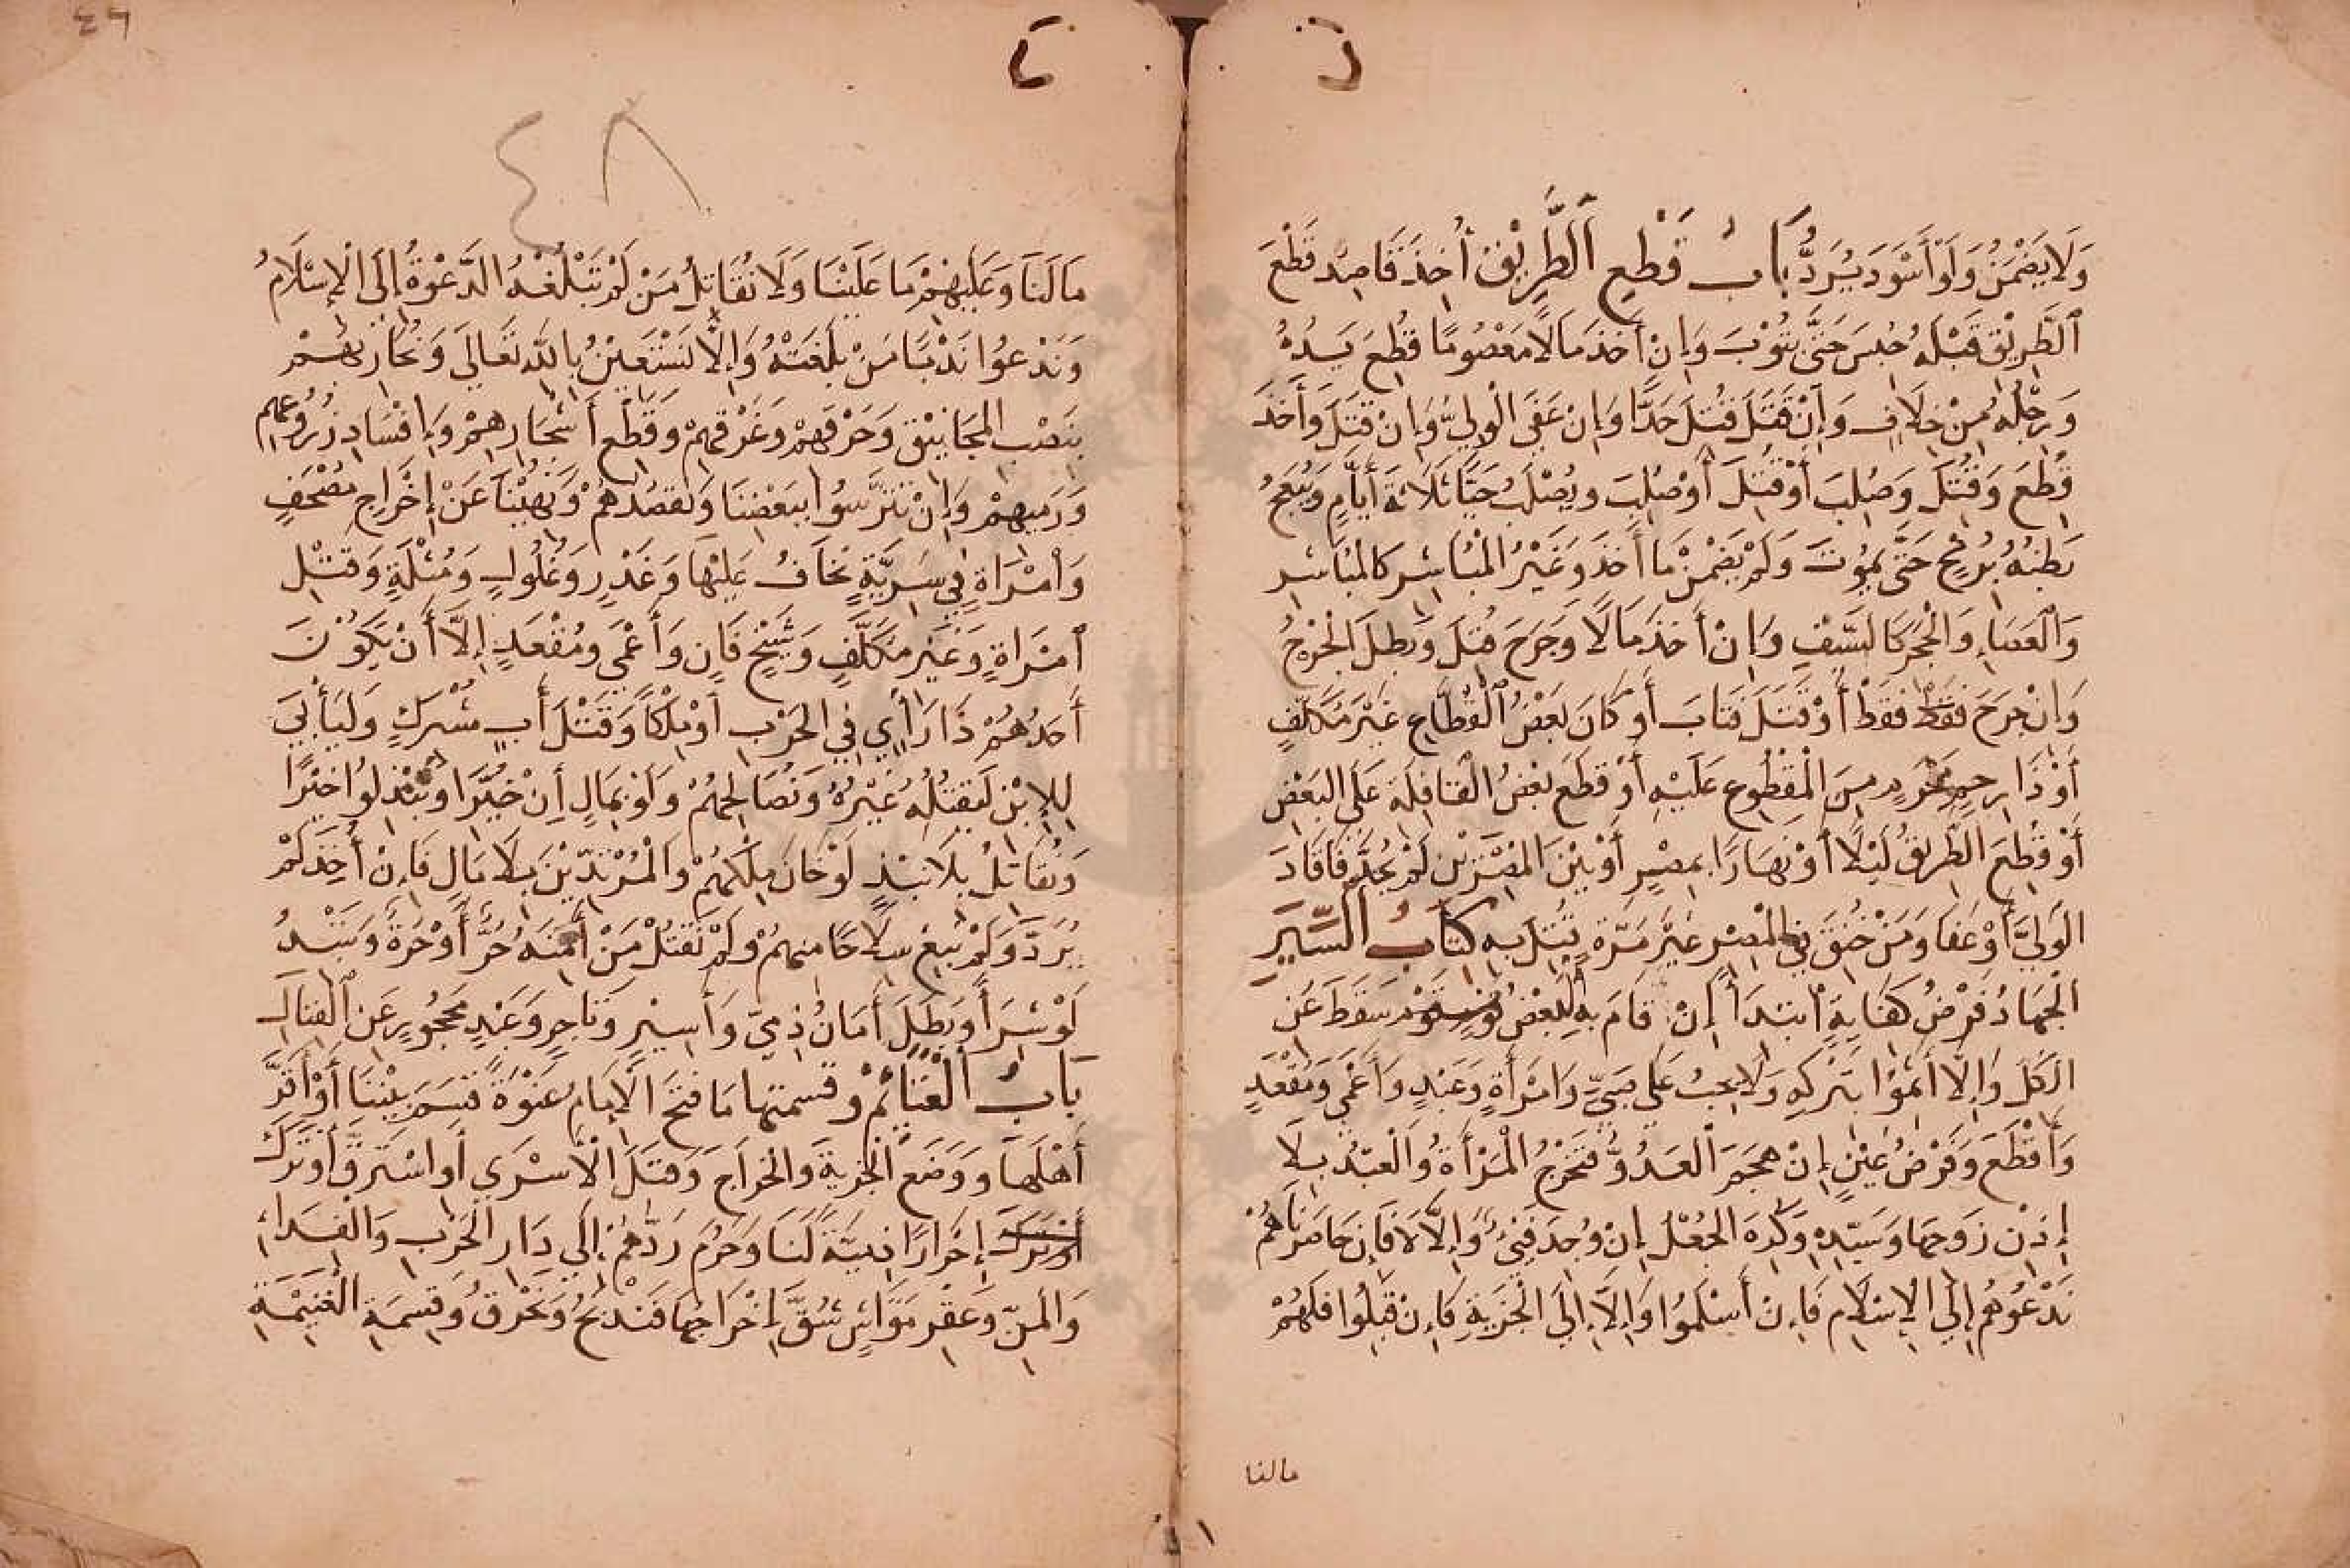 وَلَا يَضْمَنُ وَلَوْ أَسْوَدَ يُرَدُّ بَابُ قَطْعِ الطَّرِيْقِ أُخِذَ قَاصِدُ قَطْعِ
الطَّرِيْقِ قَبْلَهُ حُبِسَ حَتَّى يَتُوْبَ وَإِنْ أَخَذَ مَالًا مَعْصُومًا قُطِعَ يَدُهُ
وَرِجْلُهُ مِنْ خِلَافٍ وَإِنْ قَتَلَ قُتِلَ حَدًّا وَإِنْ عَفَى الْوَلِيُّ وَإِنْ قَتَلَ وَأَخَذَ
قُطِعَ وَقُتِلَ وَصُلِبَ أَوْ قُتِلَ أَوْ صُلِبَ وَيُصْلَبُ حَيًّا ثَلَاثَةَ أَيَّامٍ وَيُبْعَجُ
بَطْنُهُ بُرْمْحٍ حَتَّى يَمُوْتَ وَلَمْ يَضْمَنْ مَا أَخَذَ وَغَيْرُ الْمُبَاشِرِ كَالْمُبَاشِرِ
وَالْعَصَاءِ وَالْحَجَرِ كَالسَّيْفِ وَإِنْ أَخَذَ مَالًا وَجَرَحَ قُتِلَ وَبَطَلَ الْجُرْحُ
وَإِنْ جَرَحَ فَقَطْ فَقَطْ أَوْ قَتَلَ فَتَابَ أَوْ كَانَ بَعْضُ الْقُطَّاعِ غَيْرَ مُكَلَّفٍ
أَوْ ذَا رَحِمٍ مَحْرَمٍ مِنَ الْمَقْطُوعِ عَلَيْهِ أَوْ قَطَعَ بَعْضُ الْقَافِلَةِ عَلَى الْبَعْضِ
أَوْ قُطِعَ الطَّرِيقُ لَيْلًا أَوْ نَهَارًا بِمِصْرٍ أَوْ بَيْنَ الْمِصْرَيْنِ لَمْ يُحَدَّ فَاقَادَ
الْوَلِيَّ أَوْ عَفَا وَمَنْ خَنَقَ فِي الْمِصْرِ غَيْرَ مَرَّةٍ قُتِلَ بِهِ كِتَابُ السِّيَرِ
الْجِهَادُ فَرْضُ كِفَايَةٍ ابْتِدَاءً إِنْ قَامَ بِهِ الْبَعْضُ سَقَطَ عَنِ
الْكُلِّ وَإِلَّا أَثِمُوْا بِتَرْكِهِ وَلَا يَجِبُ عَلَى صَبِيٍّ وَامْرَأَةٍ وَعَبْدٍ وَأَعْمَى وَمُقْعَدٍ
وَأَقْطَعَ وَفَرْضُ عَيْنٍ إِنْ هَجَمَ الْعَدُوُّ فَتَخْرُجُ الْمَرْأَةُ وَالْعَبْدُ بِلَا
إِذْنِ زَوْجِهَا وَسَيِّدِهِ وَكُرِهَ الْجُعْلُ إِنْ وُجِدَ فَيْءٌ وَإِلَّا لَا فَإِنْ حَاصَرْنَاهُمْ
نَدْعُوْهُمْ إِلَى الْإِسْلَامِ فَإِنْ أَسْلَمُوا وَإِلَّا إِلَى الْجِزْيَةِ فَإِنْ قَبِلُوا فَلَهُمْ
مالنا
٤٩
٤٨
مَا لَنَا وَعَلَيْهِمْ مَا عَلَيْنَا وَلَا نُقَاتِلُ مَنْ لَمْ تَبْلُغْهُ الدَّعْوَةُ إِلَى الْإِسْلَامِ
وَنَدْعُوا نَدْبًا مَنْ بَلَغَتْهُ وَإِلَّا نَسْتَعِيْنُ بِاللّٰهِ تَعَالَى وَنُحَارِبُهُمْ
بِنَصْبِ الْمَجَانِيْقِ وَحَرْقِهِمْ وَغَرْقِهِمْ وَقَطْعِ أَشْجَارِهِمْ وَإِفْسَادِ زُرُوعِهِمْ
وَرَمْيِهِمْ وَإِنْ تَتَرَّسُوْا بِبَعْضِنَا وَنَقْصُدُهُمْ وَنُهِيْنَا عَنْ إِخْرَاجِ مُصْحَفٍ
وَامْرَاةٍ فِي سَرِيَّةٍ يُخَافُ عَلَيْهَا وَغَدْرٍ وَغُلُولٍ وَمُثْلَةٍ وَقَتْلِ
امْرَاةٍ وَغَيْرِ مُكَلَّفٍ وَشَيْخٍ فَانٍ وَأَعْمَى وَمُقْعَدٍ إِلَّا أَنْ يَكُوْنَ
أَحَدُهُمْ ذَا رَأْيٍ فِي الْحَرْبِ أَوْ مَلِكًا وَقَتْلَ أَبٍ مُشْرِكٍ وَلْيَأْبَى
لِلِابْنِ لِيَقْتُلَهُ غَيْرُهُ وَنُصَالِحُهُمْ وَلَوْ بِمَالٍ إِنْ خَيْرًا وَنَنْبُذُ لَوْ خَيْرًا
وَنُقَاتِلُ بِلَا نَبْذٍ لَوْ خَانَ مَلِكُهُمْ وَالْمُرْتَدِّيْنَ بِلَا مَالٍ فَإِنْ أُخِذَ لَمْ
يُرَدَّ وَلَمْ نَبِعْ سِلَاحًا مِنْهُمْ وَلَمْ نَقْتُلْ مَنْ أَمَّنَهُ حُرٌّ أَوْ حُرَّةٌ وَنَنْبِذُ
لَوْ شَرًّا وَبَطَلَ أَمَانُ ذِمِّيٍّ وَأَسِيْرٍ وَتَاجِرٍ وَعَبْدٍ مَحْجُوْرٍ عَنِ الْقِتَالِ
بَابُ الْغَنَائِمِ وَقِسْمَتِهَا مَا فَتَحَ الْإِمَامُ عَنْوَةً قَسَمَ بَيْنَنَا أَوْ أَقَرَّ
أَهْلَهَا وَوَضَعَ الْجِزْيَةَ وَالْخَرَاجَ وَقَتَلَ الْأَسْرَى أَوِ اسْتَرَقَّ أَوْ تَرَكَ
أَوْ تَرَكَ إِحْرَارًا ذِمِّيَّةً لَنَا وَحَرُمَ رَدُّهُمْ إِلَى دَارِ الْحَرْبِ وَالْفِدَاءُ
وَالْمَنِّ وَعَقْرِ مَوَاشٍ شُقَّ إِخْرَاجُهَا فَنَذْبَحُ وَنَحْرِقُ وَقِسْمَةِ الْغَنِيْمَةِ